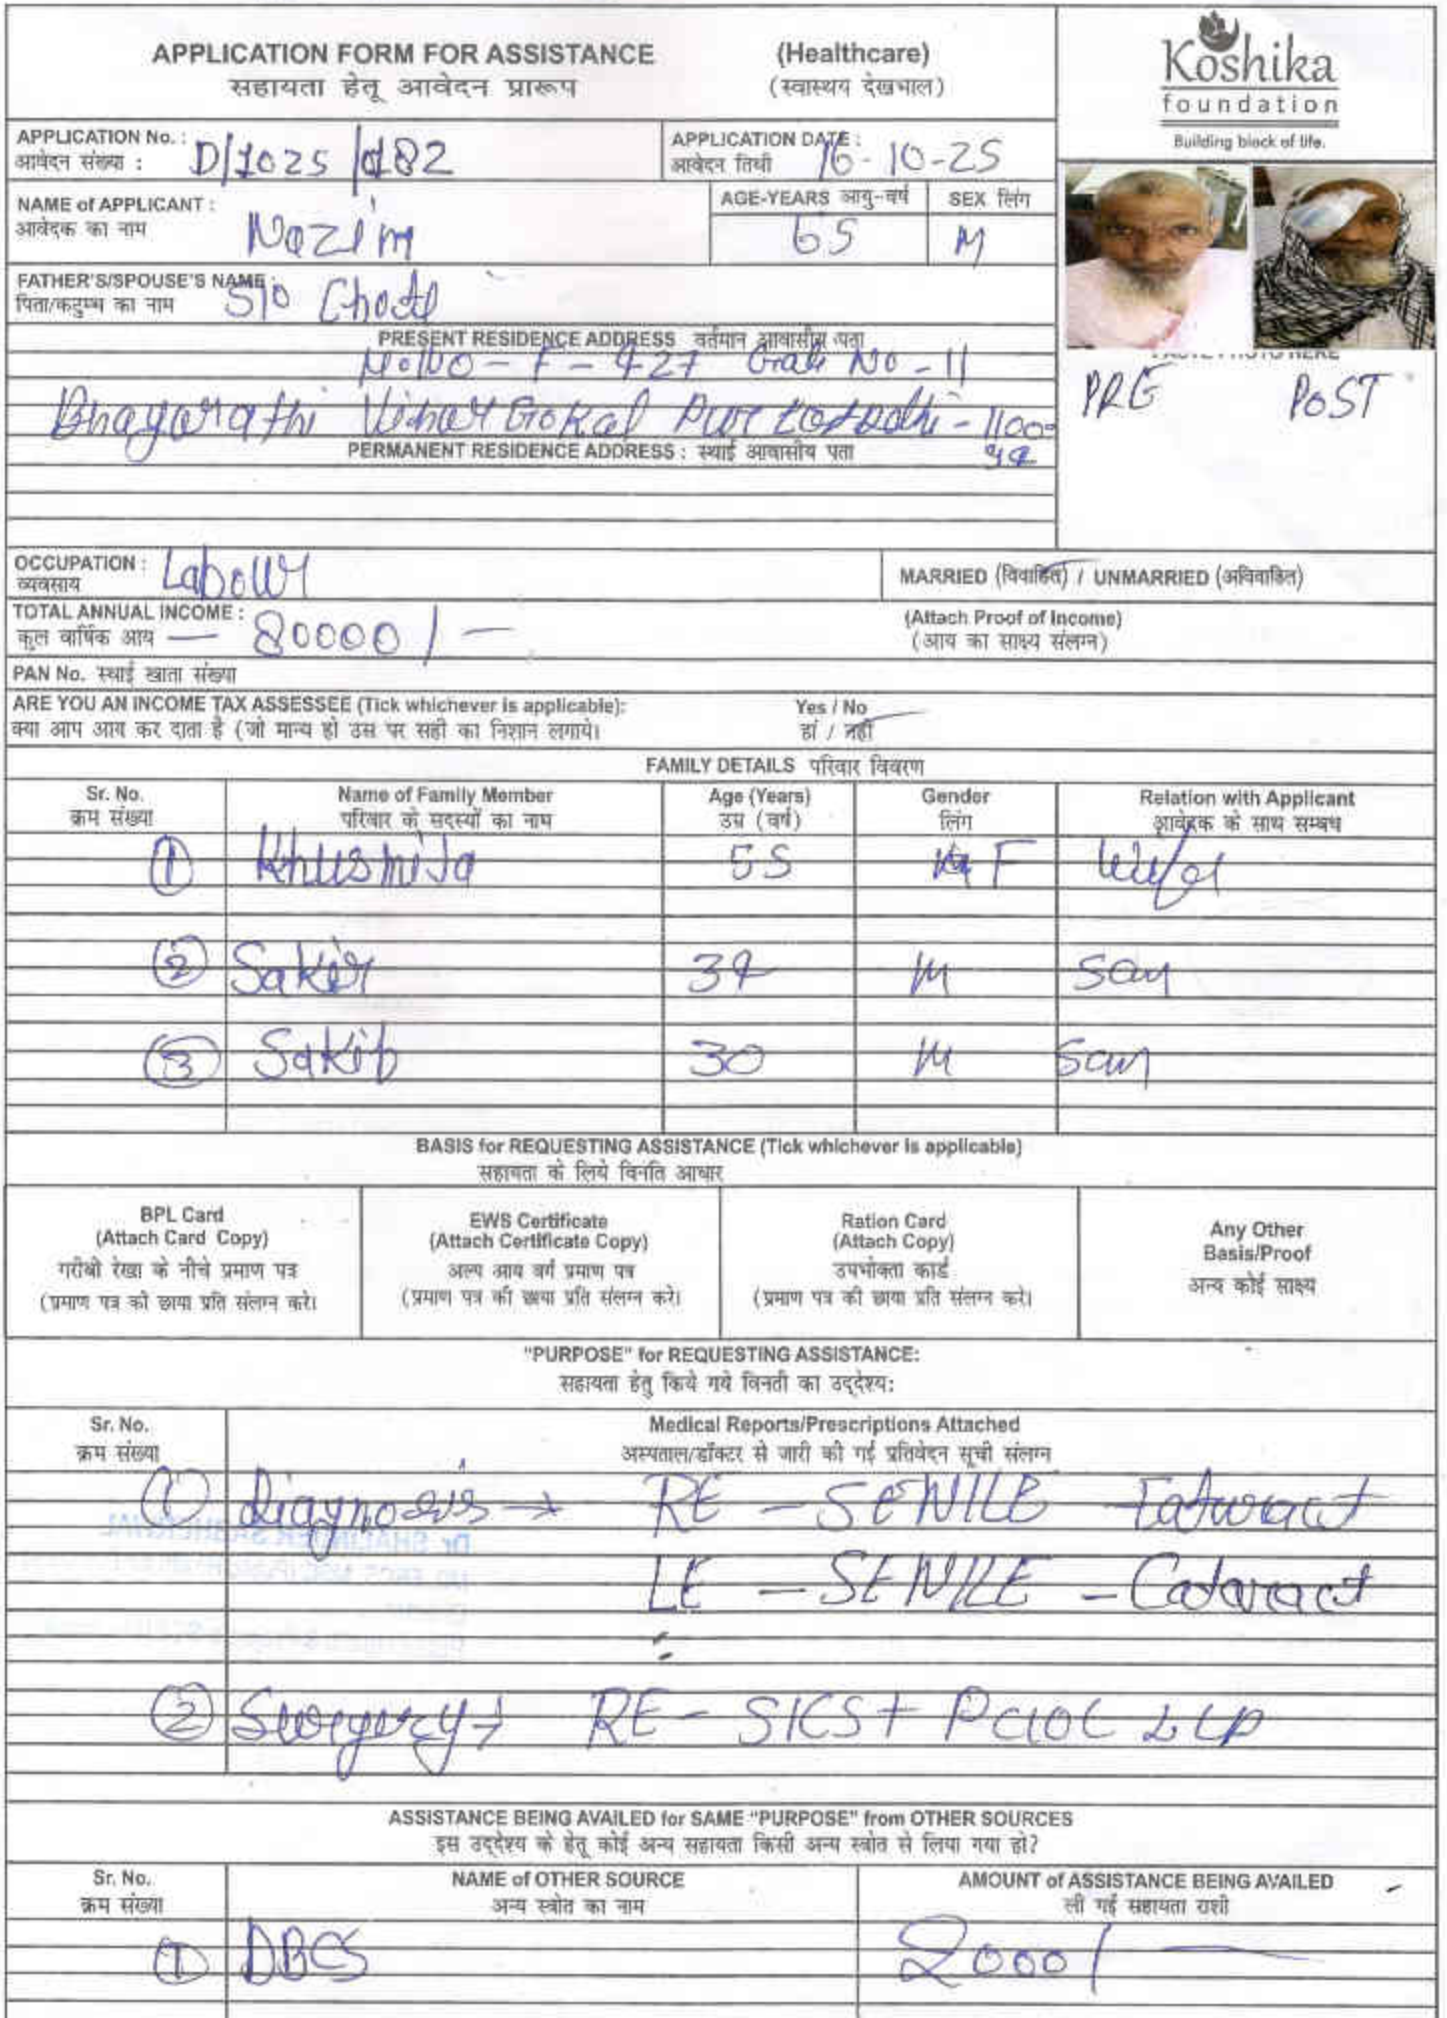 APPLICATION FORM FOR ASSISTANCE (Healthcare)
सहायता हेतू आवेदन प्रारूप (स्वास्थय देखभाल)
Koshika
foundation
Building block of life.
APPLICATION No. : D/1025/0182
आवेदन संख्या :
APPLICATION DATE : 16-10-25
आवेदन तिथी
NAME of APPLICANT : Nazim
आवेदक का नाम
AGE-YEARS आयु-वर्ष 65
SEX लिंग M
FATHER'S/SPOUSE'S NAME : S/o
पिता/कटुम्ब का नाम
PRESENT RESIDENCE ADDRESS वर्तमान आवासीय पता
F-427 Gali No-11
Bhagarathi Vihar Gokal Pur
PERMANENT RESIDENCE ADDRESS : स्थाई आवासीय पता
PRE POST
OCCUPATION : Labour
व्यवसाय
MARRIED (विवाहित) / UNMARRIED (अविवाहित)
TOTAL ANNUAL INCOME : 80000/-
कुल वार्षिक आय
(Attach Proof of Income)
(आय का साक्ष्य संलग्न)
PAN No. स्थाई खाता संख्या
ARE YOU AN INCOME TAX ASSESSEE (Tick whichever is applicable): Yes / No
क्या आप आय कर दाता है (जो मान्य हो उस पर सही का निशान लगाये। हां / नहीं
FAMILY DETAILS परिवार विवरण
Sr. No. Name of Family Member Age (Years) Gender Relation with Applicant
क्रम संख्या परिवार के सदस्यों का नाम उम्र (वर्ष) लिंग आवेदक के साथ सम्बध
1 55 F Wife
2 Sakir M Son
3 Sakib 30 M Son
BASIS for REQUESTING ASSISTANCE (Tick whichever is applicable)
सहायता के लिये विनंति आधार
BPL Card
(Attach Card Copy)
गरीबी रेखा के नीचे प्रमाण पत्र
(प्रमाण पत्र की छाया प्रति संलग्न करे।
EWS Certificate
(Attach Certificate Copy)
अल्प आय वर्ग प्रमाण पत्र
(प्रमाण पत्र की छाया प्रति संलग्न करे।
Ration Card
(Attach Copy)
उपभोक्ता कार्ड
(प्रमाण पत्र की छाया प्रति संलग्न करे।
Any Other
Basis/Proof
अन्य कोई साक्ष्य
"PURPOSE" for REQUESTING ASSISTANCE:
सहायता हेतु किये गये विनती का उद्देश्य:
Sr. No. Medical Reports/Prescriptions Attached
क्रम संख्या अस्पताल/डॉक्टर से जारी की गई प्रतिवेदन सूची संलग्न
1 Diagnosis → RE - SENILE Cataract
LE - SENILE - Cataract
2 Surgery → RE - SICS + PCIOL
ASSISTANCE BEING AVAILED for SAME "PURPOSE" from OTHER SOURCES
इस उद्देश्य के हेतू कोई अन्य सहायता किसी अन्य स्त्रोत से लिया गया हो?
Sr. No. NAME of OTHER SOURCE AMOUNT of ASSISTANCE BEING AVAILED
क्रम संख्या अन्य स्त्रोत का नाम ली गई सहायता राशी
1 DBCS 2000/-